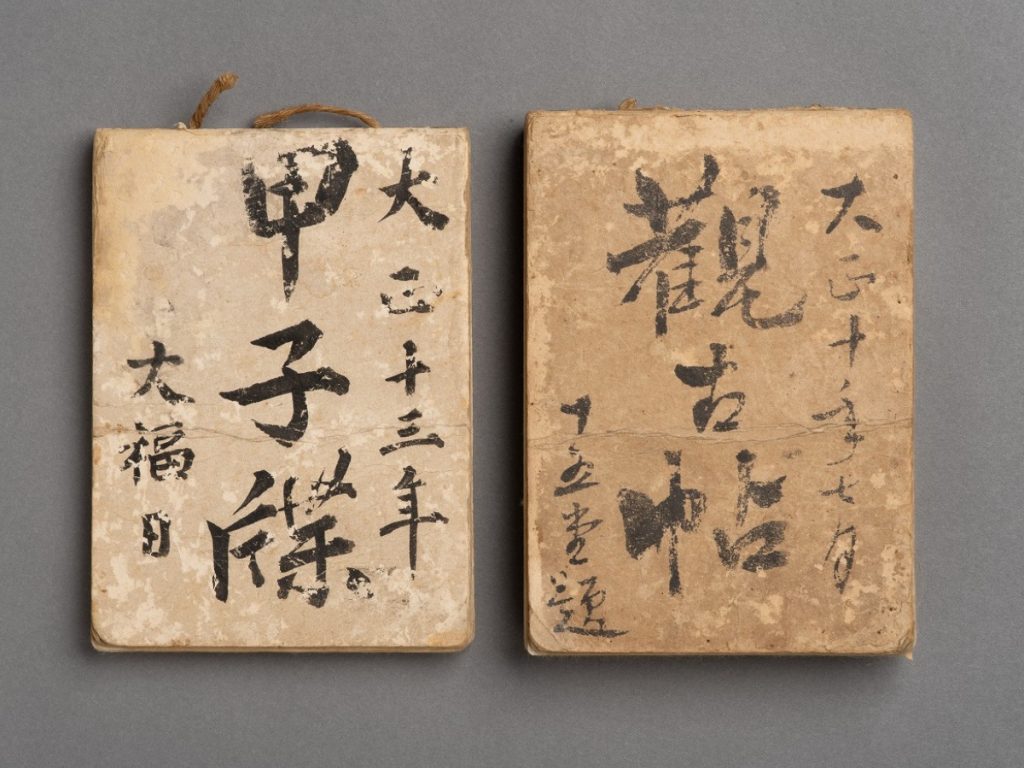 大正十年七月
觀古帖
十五堂題
大正十三年
甲子牒
大福日